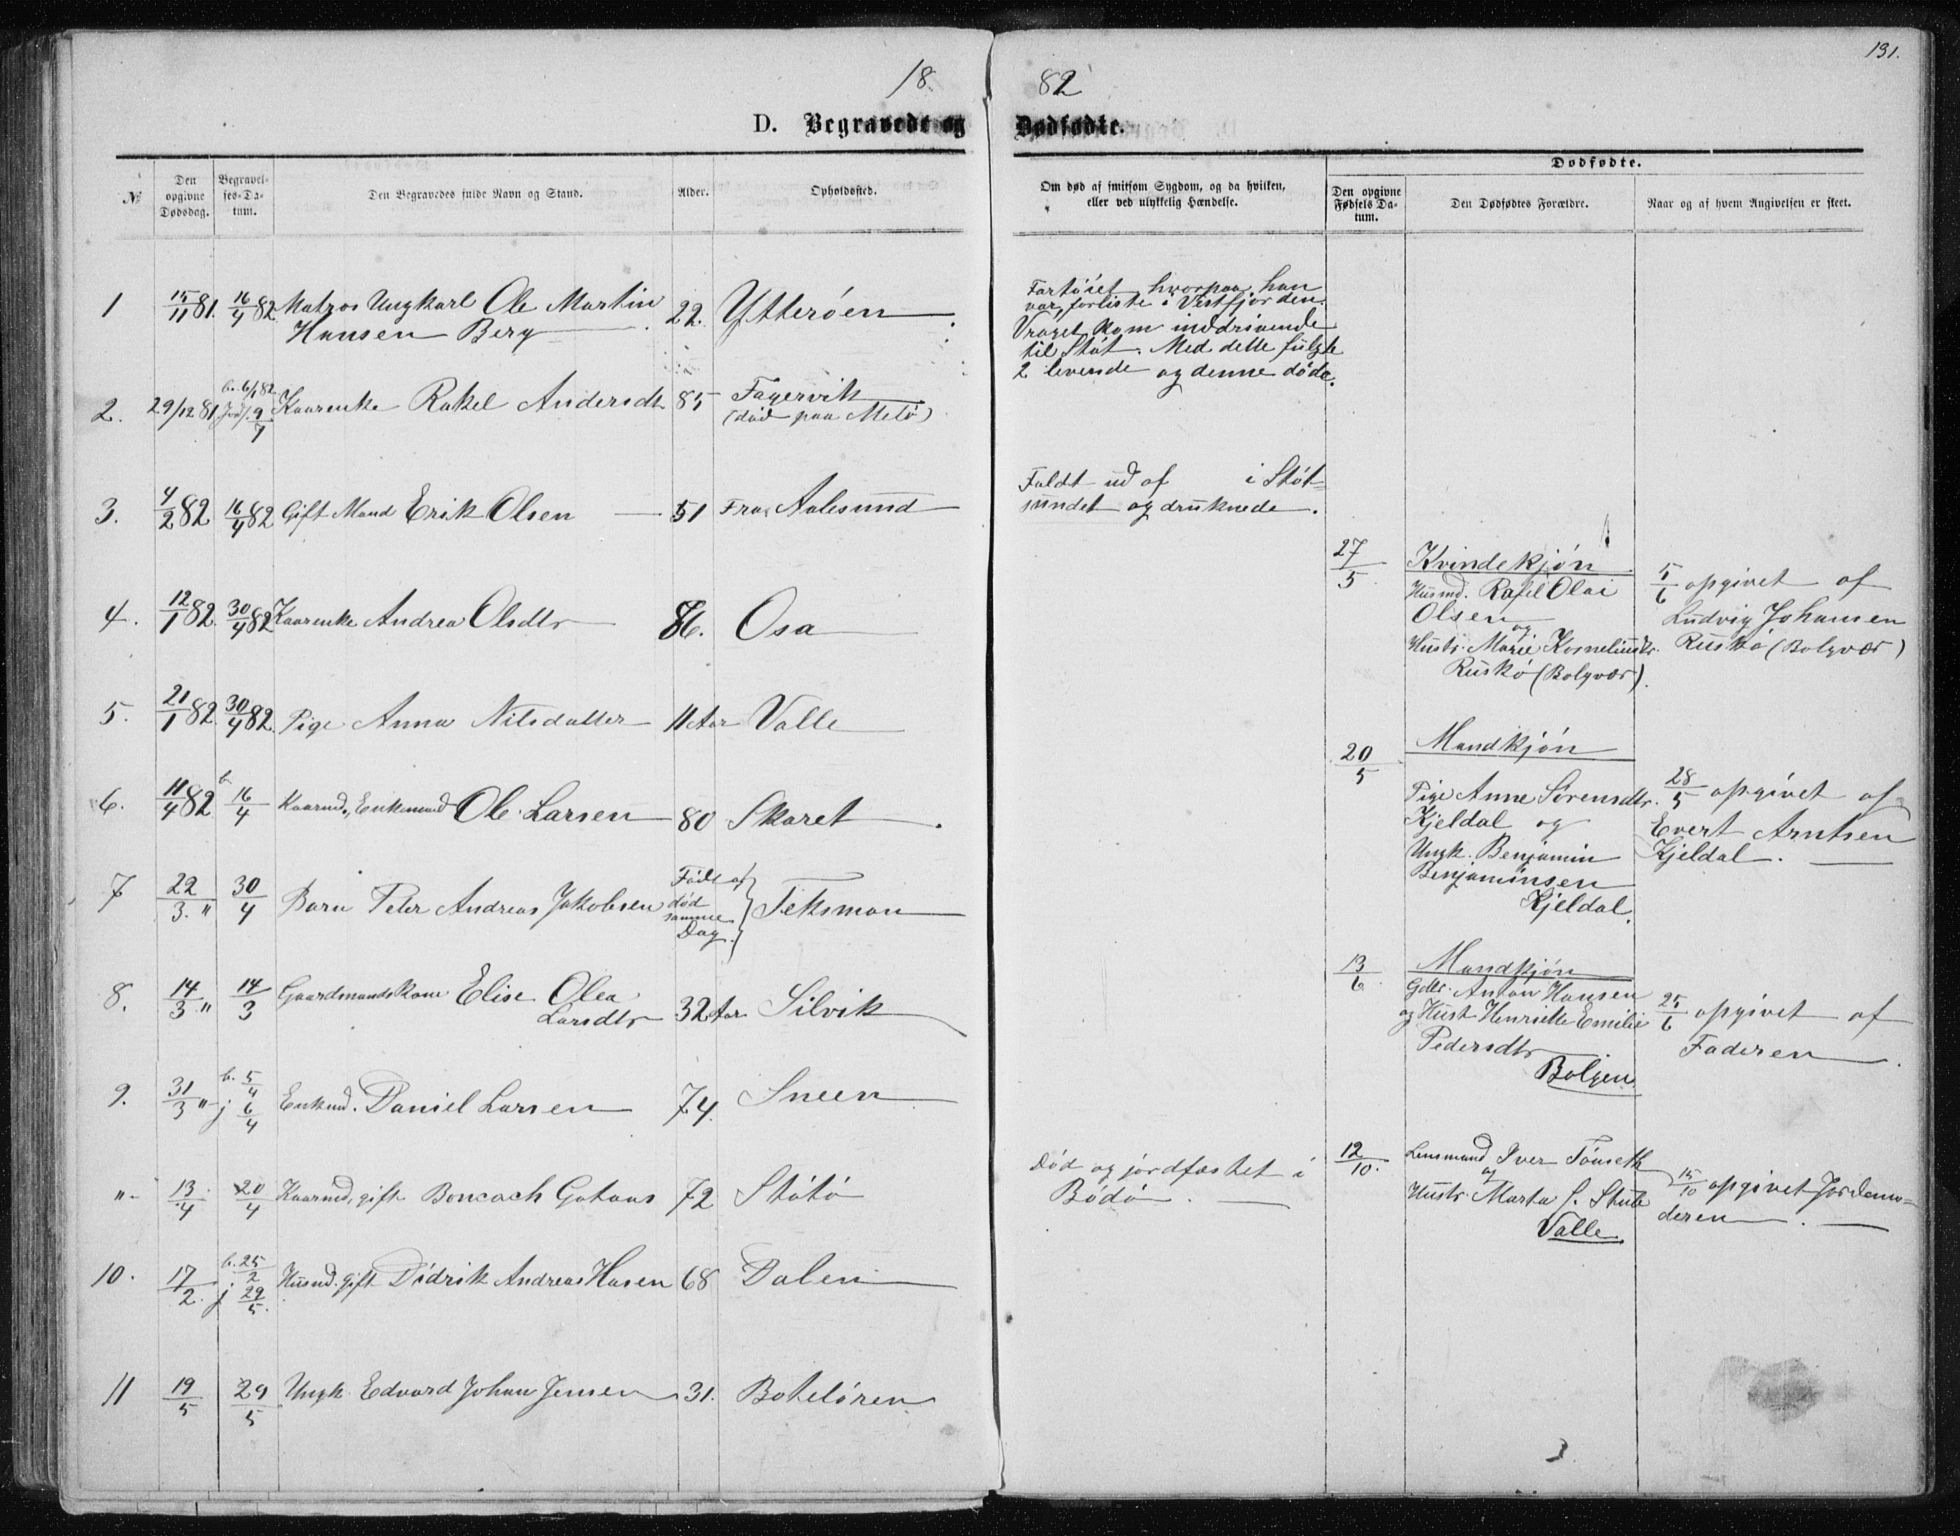 131.
18
82
D. Begravede og
Dødfødte.
№
Den opgivne Dødsdag.
Begravelses-Datum.
Den Begravedes fulde Navn og Stand.
Alder.
Opholdssted.
Om død af smitsom Sygdom, og da hvilken,
eller ved ulykkelig Hændelse.
Dødfødte.
Den opgivne Fødsels Datum.
Den Dødfødtes Forældre.
Naar og af hvem Angivelsen er skeet.
1 15/11 81. 16/4 82. Matros Ungkarl Ole Martin 22. Ytterøen
Hansen Berg
Fartøiet hvorpaa han
var forliste i Vestfjorden.
Vraget kom inddrivende
til Støt. Med dette fulgte
2 levende og denne døde.
2. 29/12 81 b. 6/1 82 Jordf. 9/7 Kaarenke Rakel Andersdtr 85 Fagervik
(død paa Melø)
3. 4/2 82 16/4 82 Gift Mand Erik Olsen 51 Fra Aalesund
Faldt ud af i Støt-
sundet og druknede.
4. 12/1 82. 30/4 82 Kaarenke Andrea Olsdtr 86. Osa
5. 21/1 82 30/4 82. Pige Anna Nilsdatter 11 Aar Valle
6. 11/4 82 b. 16/4 Kaarmd., Enkemand Ole Larsen 80 Skaret
7 22/3 " 30/4 Barn Peter Andreas Jakobsen Født og
død
samme
Dag. Teksmon
8. 14/3 " 14/3 Gaardmandskone Elise Olea 32 Aar Silvik
Larsdtr
9. 31/3 " b. 5/4 j 6/4 Enkemd. Daniel Larsen 74. Sneen
"- 13/4 20/4 Kaarmd, gift 72 Støtø
Død og jordfæstet i
Bodø.
10. 17/2. b. 25/2 j 29/5. Husmd. gift Didrik Andreas Hasen 68 Dalen
11 19/5 29/5 Ungk. Edvard Johan Jensen 31. Boteløren
27/5 Kvindekjøn
Husmd. Rafel Olai
Olsen
og
Hustr. Marie Korneliusdtr.
Ruskø (Bolgvær).
5/6 opgivet af
Ludvig Johansen
Ruskø (Bolgvær)
20/5 Mandkjøn
Pige Anne Sørensdtr.
Kjeldal og
Ungk. Benjamin
Benjaminsen
Kjeldal.
28/5 opgivet af
Evert Arntsen
Kjeldal.
13/6 Mandkjøn
Gdbr. Anton Hansen
og Hust. Henriette Emilie
Pedersdtr
Bolgen
25/6 opgivet af
Faderen
12/10. Lensmand Iver Tønseth
og
Hustr. Marta
Valle.
15/10 opgivet Jordemo-
deren.